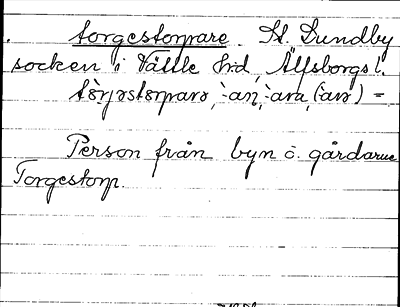 torgestorpare. St. Lundby
socken i Vättle hrd, Älfsborgs l.
-an, -ara, (-arə) =
Person från byn o. gårdarne
Torgestorp.